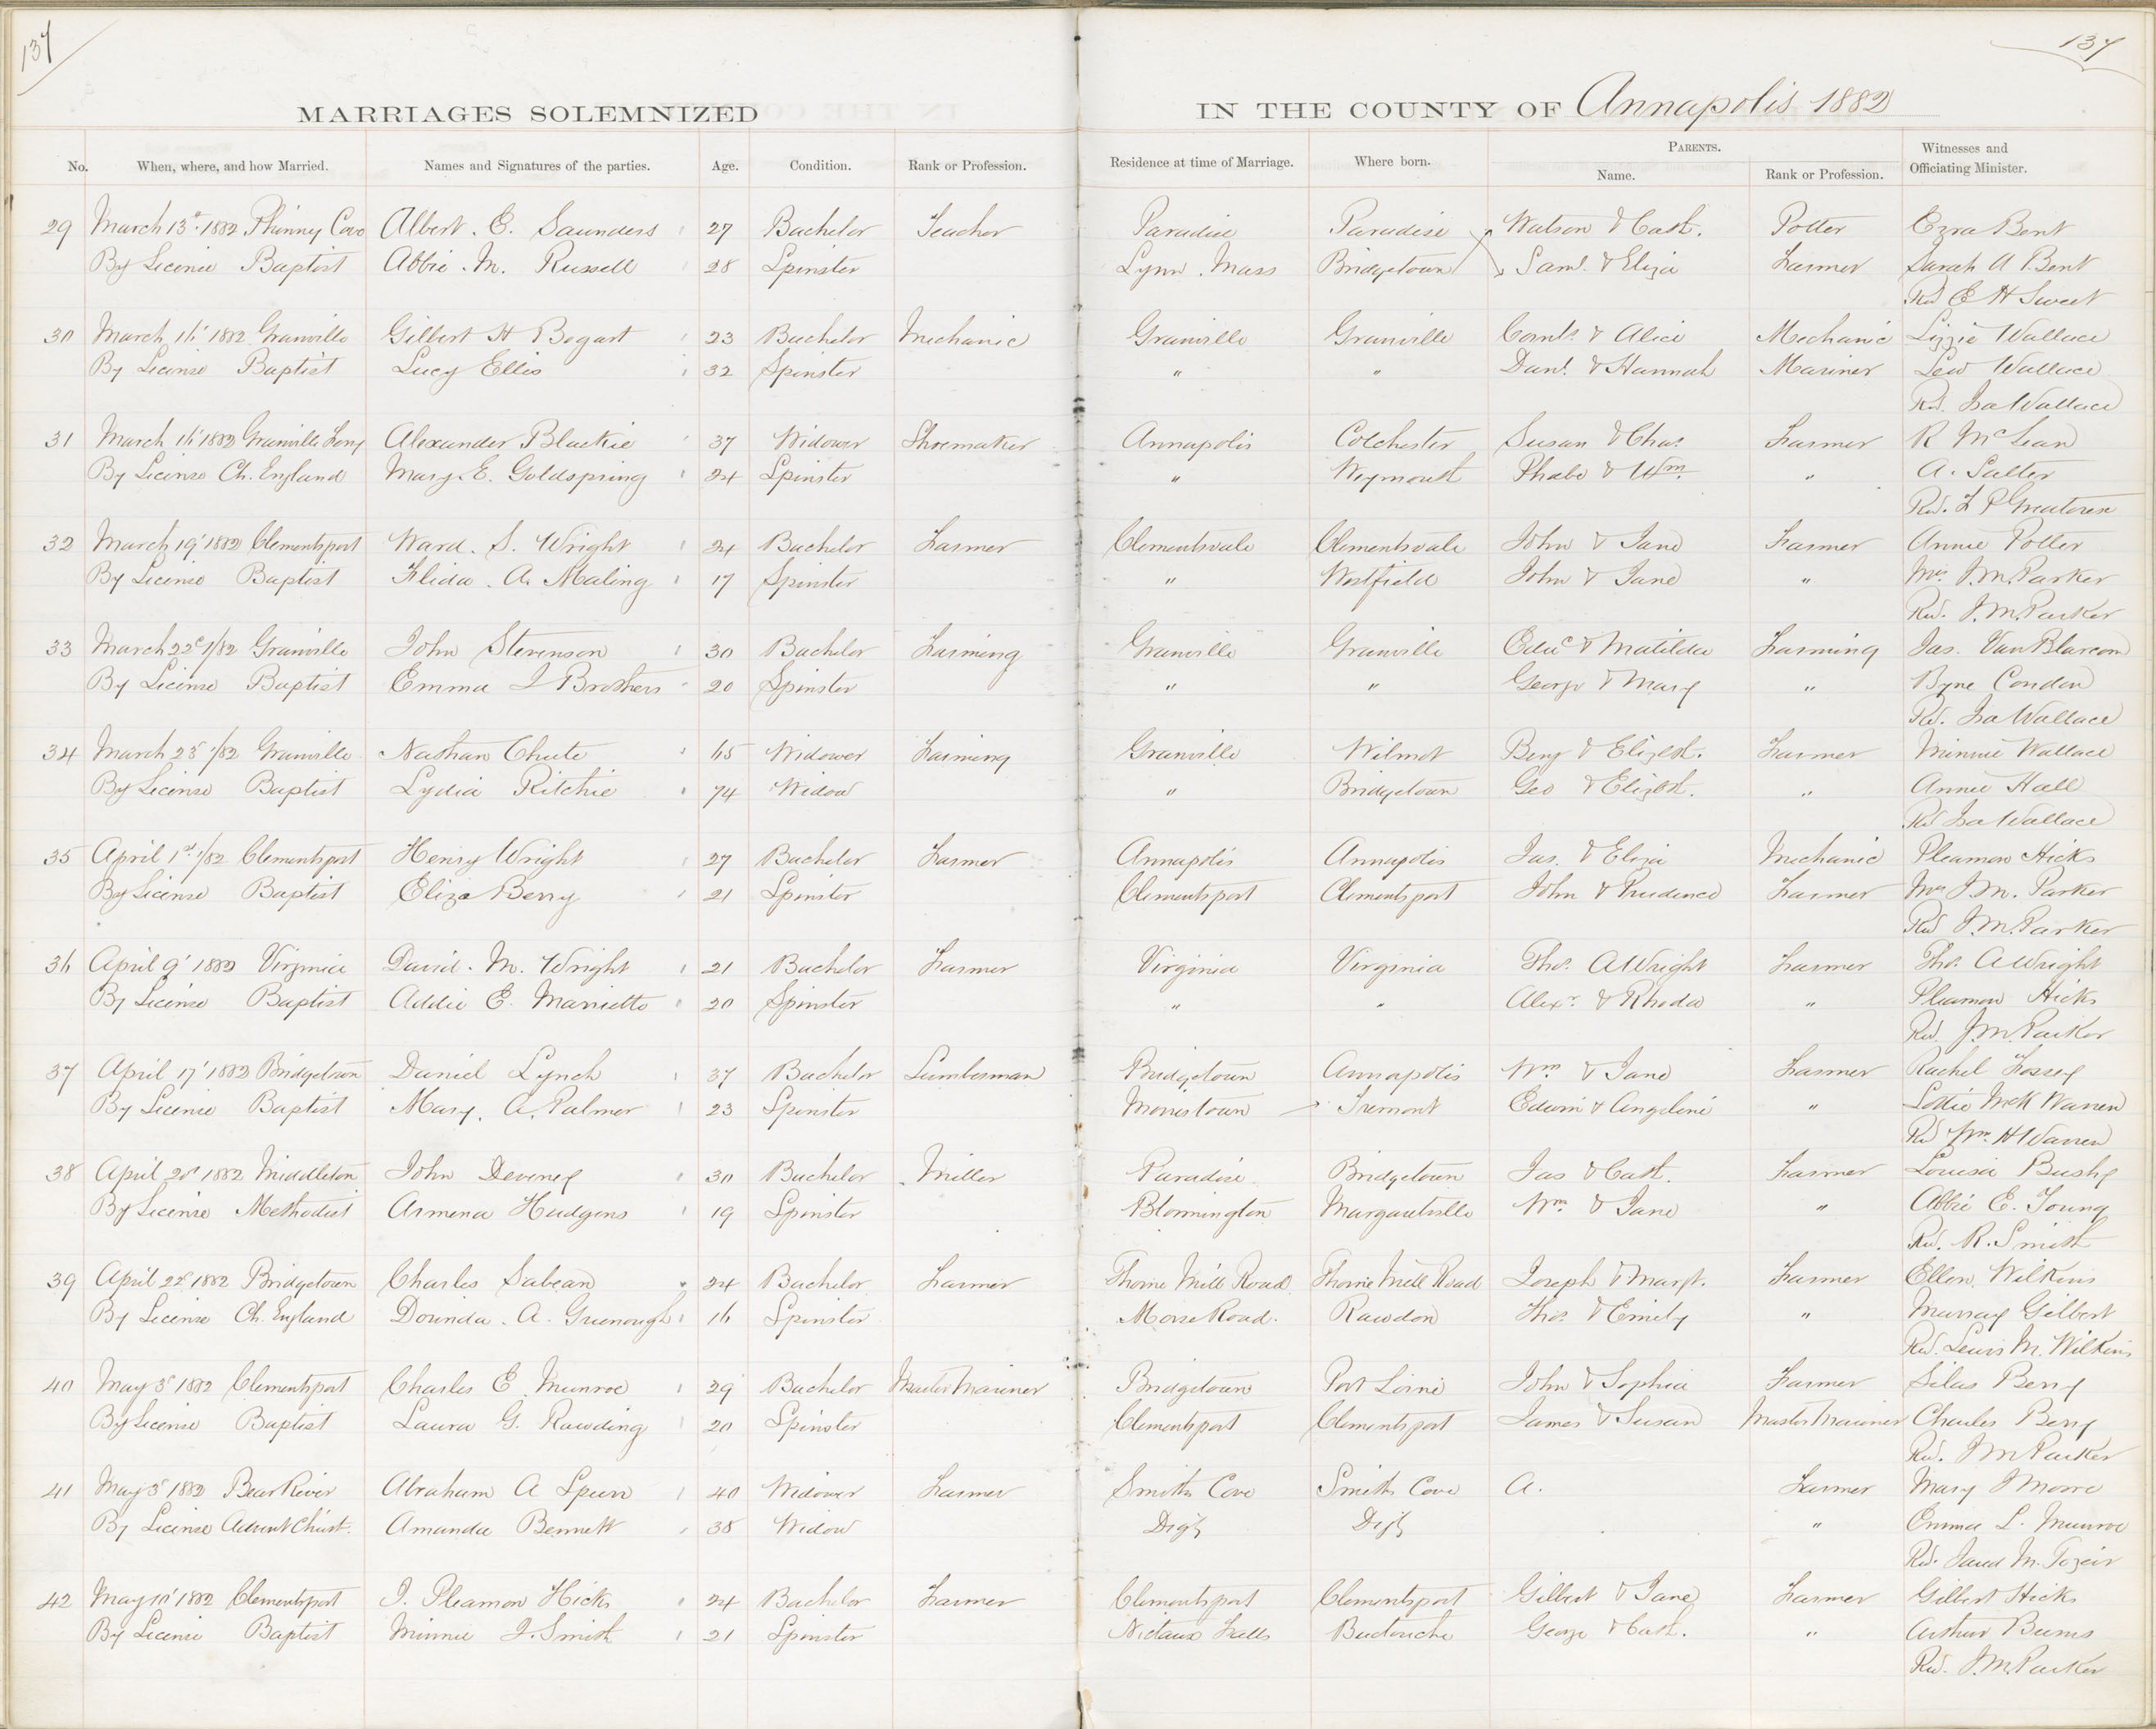 137
137
MARRIAGES SOLEMNIZED IN THE COUNTY OF Annapolis 1882
No. When, where, and how Married. Names and Signatures of the parties. Age. Condition. Rank or Profession. Residence at time of Marriage. Where born. PARENTS. Name. Rank or Profession. Witnesses and Officiating Minister.
29 March 13th 1882 Phinny Cove Albert. E. Saunders 27 Bachelor Teacher Paradise Paradise Watson & Cath. Potter Ezra Bent
By License Baptist Abbie. M. Russell 28 Spinster Lynn. Mass Bridgetown Saml. & Eliza Farmer Sarah A Bent
Rev E H Sweet
30 March 16' 1882 Granville Gilbert H Bogart 23 Bachelor Mechanic Granville Granville Cornls. & Alice Mechanic Lizzie Wallace
By License Baptist Lucy Ellis 32 Spinster " " Danl. & Hannah Mariner Lew Wallace
Rev. Isa Wallace
31 March 16' 1882 Granville Ferry Alexander Blackie 37 Widower Shoemaker Annapolis Colchester Susan & Chas. Farmer R McLean
By License Ch. England Mary. E. Goldspring 24 Spinster " Weymouth Phabe & Wm. " A. Salter
Rev. F P Greatorex
32 March 19' 1882 Clementsport Ward. S. Wright 24 Bachelor Farmer Clementsvale Clementsvale John & Jane Farmer Annie Potter
By License Baptist Flida. A. Maling 17 Spinster " Westfield John & Jane " Mrs J. M. Parker
Rev. J. M. Parker
33 March 22d 1/82 Granville John Stevenson 30 Bachelor Farming Granville Granville Edwd & Matilda Farming Jas. Van Blarcom
By License Baptist Emma J Brothers 20 Spinster " " George & Mary " Byne Condon
Rev. Isa Wallace
34 March 25' 1/82 Granville Nathan Chute 65 Widower Farming Granville Wilmot Benj & Elizbth. Farmer Minnie Wallace
By License Baptist Lydia Ritchie 74 Widow " Bridgetown Geo & Elizbth. " Annie Hall
Rev Isa Wallace
35 April 1st 1/82 Clementsport Henry Wright 27 Bachelor Farmer Annapolis Annapolis Jas. & Eliza Mechanic Pleamon Hicks
By License Baptist Eliza Berry 21 Spinster Clementsport Clementsport John & Prudence Farmer Mrs J. M. Parker
Rev J. M. Parker
36 April 9' 1882 Virginia David. M. Wright 21 Bachelor Farmer Virginia Virginia Thos. A Wright Farmer Thos. A Wright
By License Baptist Addie E. Marrietto 20 Spinster " " Alexr. & Rhoda " Pleamon Hicks
Rev. J. M. Parker
37 April 17' 1882 Bridgetown Daniel Lynch 37 Bachelor Lumberman Bridgetown Annapolis Wm & Jane Farmer Rachel Fossey
By License Baptist Mary. A. Palmer 23 Spinster Morristown Tremont Edwin & Angeline " Lottie McK Warren
Rev Wm. H Warren
38 April 20' 1882 Middleton John Deveney 30 Bachelor Miller Paradise Bridgetown Jas & Cath. Farmer Louisa Bushy
By License Methodist Armena Hudgens 19 Spinster Blomington Margaretville Wm. & Jane " Abbie E. Young
Rev. R. Smith
39 April 22' 1882 Bridgetown Charles Sabean 24 Bachelor Farmer Thorne Mill Road Thorne Mill Road Joseph & Margt. Farmer Ellen Wilkins
By License Ch. England Dorinda. A. Greenough 16 Spinster Morse Road. Rawdon Thos. & Emily " Murray Gilbert
Rev. Lewis M. Wilkins
40 May 3' 1882 Clementsport Charles E Munroe 29 Bachelor Master Mariner Bridgetown Port Lorne John & Sophia Farmer Silas Berry
By License Baptist Laura G. Rawding 20 Spinster Clementsport Clementsport James & Susan Master Mariner Charles Berry
Rev. J M Parker
41 May 3' 1882 Bear River Abraham A Spurr 40 Widower Farmer Smiths Cove Smiths Cove A. Farmer Mary J Morse
By License Advent Christ. Amanda Bennett 38 Widow Digby Digby " Emma L. Munroe
Rev. M.
42 May 10' 1882 Clementsport J. Pleamon Hicks 24 Bachelor Farmer Clementsport Clementsport Gilbert & Jane Farmer Gilbert Hicks
By License Baptist Minnie J. Smith 21 Spinster Nictaux Falls Buctouche George & Cath. " Arthur Burns
Rev. J. M. Parker